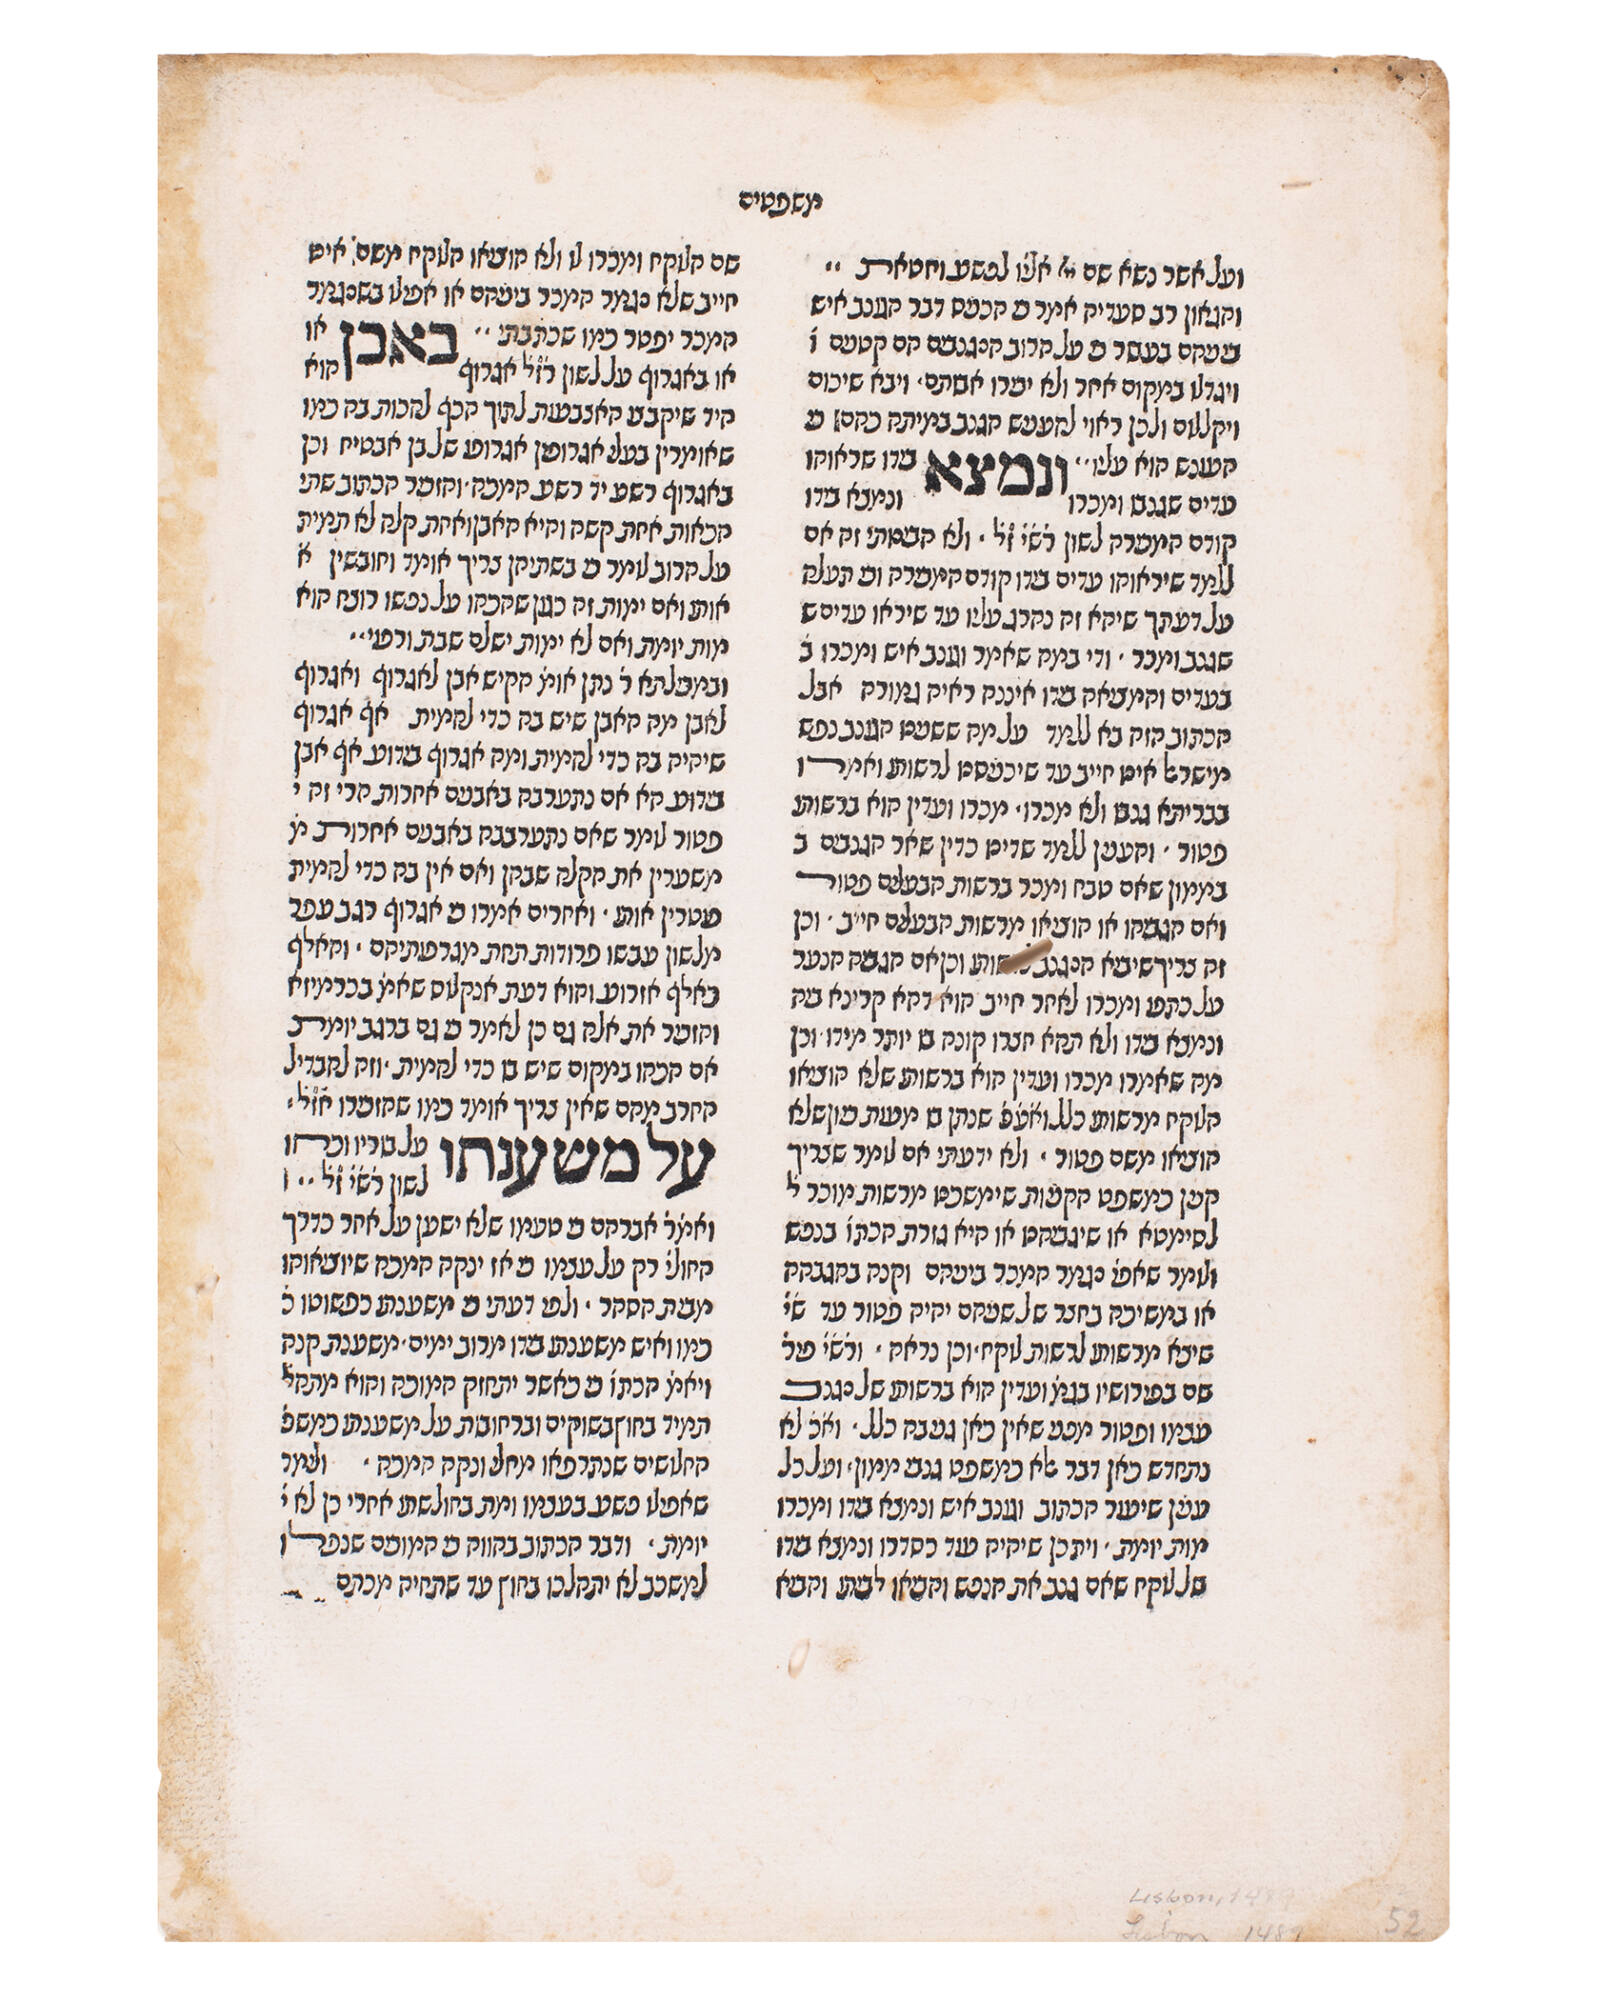 משפטים
ועל אשר נשא שם יי' אליו לפשע וחטאת ״
והגאון רב סעדיה אמר כי הכניס דבר הגונב איש
בינתים בעבור כי על הרוב הנגנבים הם קטנים ו
ויגדלו במקום אחר ולא יכירו אבותם' ויבא שיכום
ויקללום ולכן ראוי להענש הגנב במיתה כהם כי
העונש הוא עליו ״ ונמצא בידו שראוהו
עדים שגנבו ומכרו ונמצא בידו
קודם המכירה לשון רש״י ז״ל · ולא הבינותי זה אם
ללמד שיראוהו עדים בידו קודם המכירה וכי תעלה
על דעתך שיהא זה נהרג עליו עד שיראו עדים ש
שגנב ומכר · ודי במה שאמר וגונב איש ומכרו ב
בעדים והמציאה בידו איננה ראיה גמורה אבל
הכתוב הזה בא ללמד על מה ששנינו הגונב נפש
מישראל אינו חייב עד שיכניסנו לרשותו ואמרו
בברייתא גנבו ולא מכרו· מכרו ועדין הוא ברשותו
פטור · והענין ללמד שדינו כדין שאר הגנבים ב
בממון שאם טבח ומכר ברשות הבעלים פטור
ואם הגביהו או הוציאו מרשות הבעלים חייב · וכן
זה צריך שיבא הנגנב לרשותו וכן אם הגביה הנער
על כתפו ומכרו לאחר חייב הוא דהא קרינא ביה
ונמצא בידו ולא תהא חצרו קונה לו יותר מידו· וכן
מה שאמרו מכרו ועדין הוא ברשותו שלא הוציאו
הלוקח מרשותו כלל ואע״פ שנתן לו מעות כיון שלא
הוציאו משם פטור · ולא ידעתי אם לומר שצריך
קנין כמשפט הקניות שימשכנו מרשות מוכר ל
לסימטא או שיגביהנו או היא גזרת הכתו' בנפש
ולומר שאפי' נגמר המכר ביניהם וקנה בהגבהה
או במשיכה בחצר של שניהם יהיה פטור עד שי
שיצא מרשותו לרשות לוקח· וכן נראה · ורש״י פיר'
שם בפירושיו בגמ' ועדין הוא ברשותו של נגנב
עצמו ופטור מפני שאין כאן גניבה כלל · וא״כ לא
נתחדש כאן דבר אלא כמשפט גנבי ממון· ועל כל
ענין שיעור הכתוב וגונב איש ונמצא בידו ומכרו
מות יומת · ויתכן שיהיה עוד כסדרו ונמצא בידו
של לוקח שאם גנב את הנפש והביאו לביתו והביא
שם הלוקח ומכרו לו ולא הוציאו הלוקח משם· אינו
חייב שלא נגמר המכר ביניהם או אפילו בשנגמר
המכר יפטר כמו שכתבתי ״ באבן או
או באגרוף על לשון רז״ל אגרוף הוא
היד שיקבצו האצבעות לתוך הכף להכות בה כמו
שאומרין בעלי אגרופין אגרופו של בן אבטיח וכן
באגרוף רשע יד רשע המכה· והזכיר הכתוב שתי
הכאות אחת קשה והיא האבן ואחת קלה לא תמית
על הרוב לומר כי בשתיהן צריך אומד וחובשין א
אותו ואם ימות זה כגון שהכהו על נפשו רוצח הוא
מות יומת ואם לא ימות ישלם שבת ורפוי ״
ובמכילתא ר' נתן אומ' הקיש אבן לאגרוף ואגרוף
לאבן מה האבן שיש בה כדי להמית אף אגרוף
שיהיה בה כדי להמית ומה אגרוף בידוע אף אבן
בידוע הא אם נתערבה באבנים אחרות הרי זה י
פטור לומר שאם נתערבבה באבנים אחרות מ
משערין את הקלה שבהן ואם אין בה כדי להמית
פוטרין אותו · ואחרים אמרו כי אגרוף רגב עפר
מלשון עבשו פרודות תחת מגרפותיהם · והאלף
כאלף אזרוע והוא דעת אנקלוס שאמ' בכרמיזא
והזכיר את אלה גם כן לאמר כי גם ברגב יומת
אם הכהו במקום שיש בו כדי להמית · וזה להבדיל
החרב מהם שאין צריך אומד כמו שהזכירו רז״ל·
על משענתו על בוריו וכחו
לשון רש״י ז״ל ״ ו
ואמ' ר' אברהם כי טעמו שלא ישען על אחר כדרך
החולי' רק על עצמו כי אז ינקה המכה שיוציאוהו
מבית הסהר · ולפי דעתי כי משענתו כפשוטו כ
כמו ואיש משענתו בידו מרוב ימים· משענת קנה
ויאמ' הכתו' כי כאשר יתחזק המוכה והוא מתהל'
תמיד בחוץ בשוקים וברחובות על משענתו כמשפ'
החלושים שנתרפאו מחלי ונקה המכה · ולימד
שאפילו פשע בעצמו ומת בחולשתו אחרי כן לא י
יומת · ודבר הכתוב בהווה כי המוכים שנפלו
למשכב לא יתהלכו בחוץ עד שתחיה מכתם
Lisbon, 1489
Lisbon 1489
52